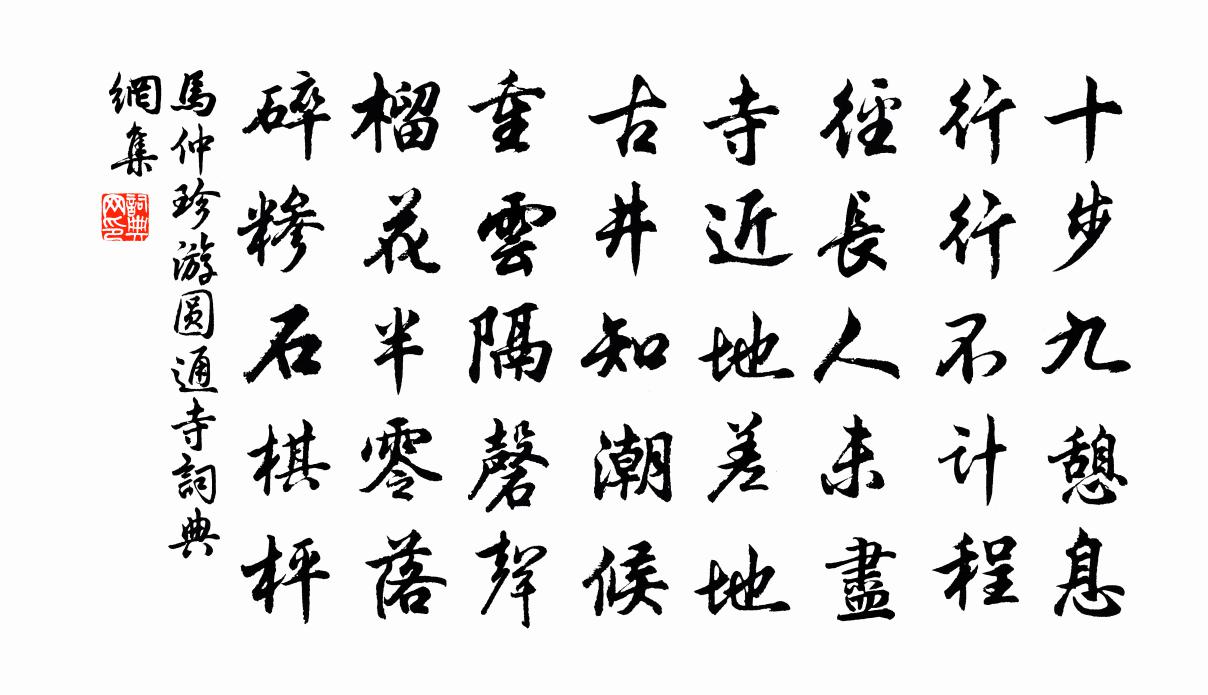 十步九憩息
行行不計程
徑長人未盡
寺近地差地
古井知潮候
重雲隔磬聲
榴花半零落
碎糝石棋枰
馬仲珍游圓通寺詞典
網集
詞典网印